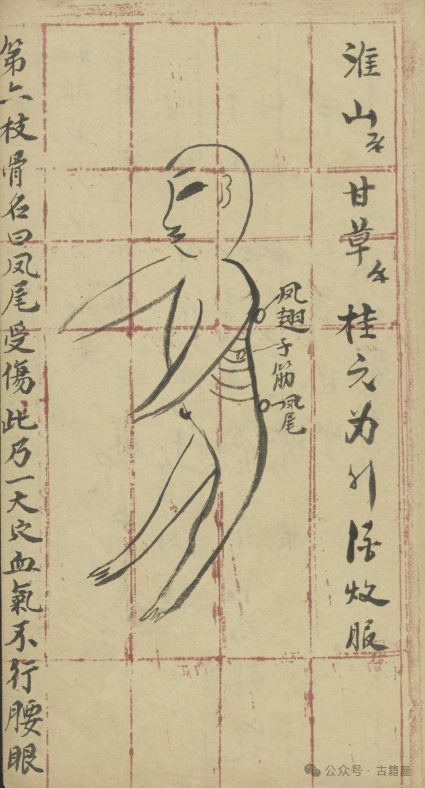 淮山 甘草 桂元为引 酒炆服
凤翅
子筋
凤尾
第六枝骨名曰凤尾受傷此乃一大穴血氣不行腰眼
公众号·古籍屋